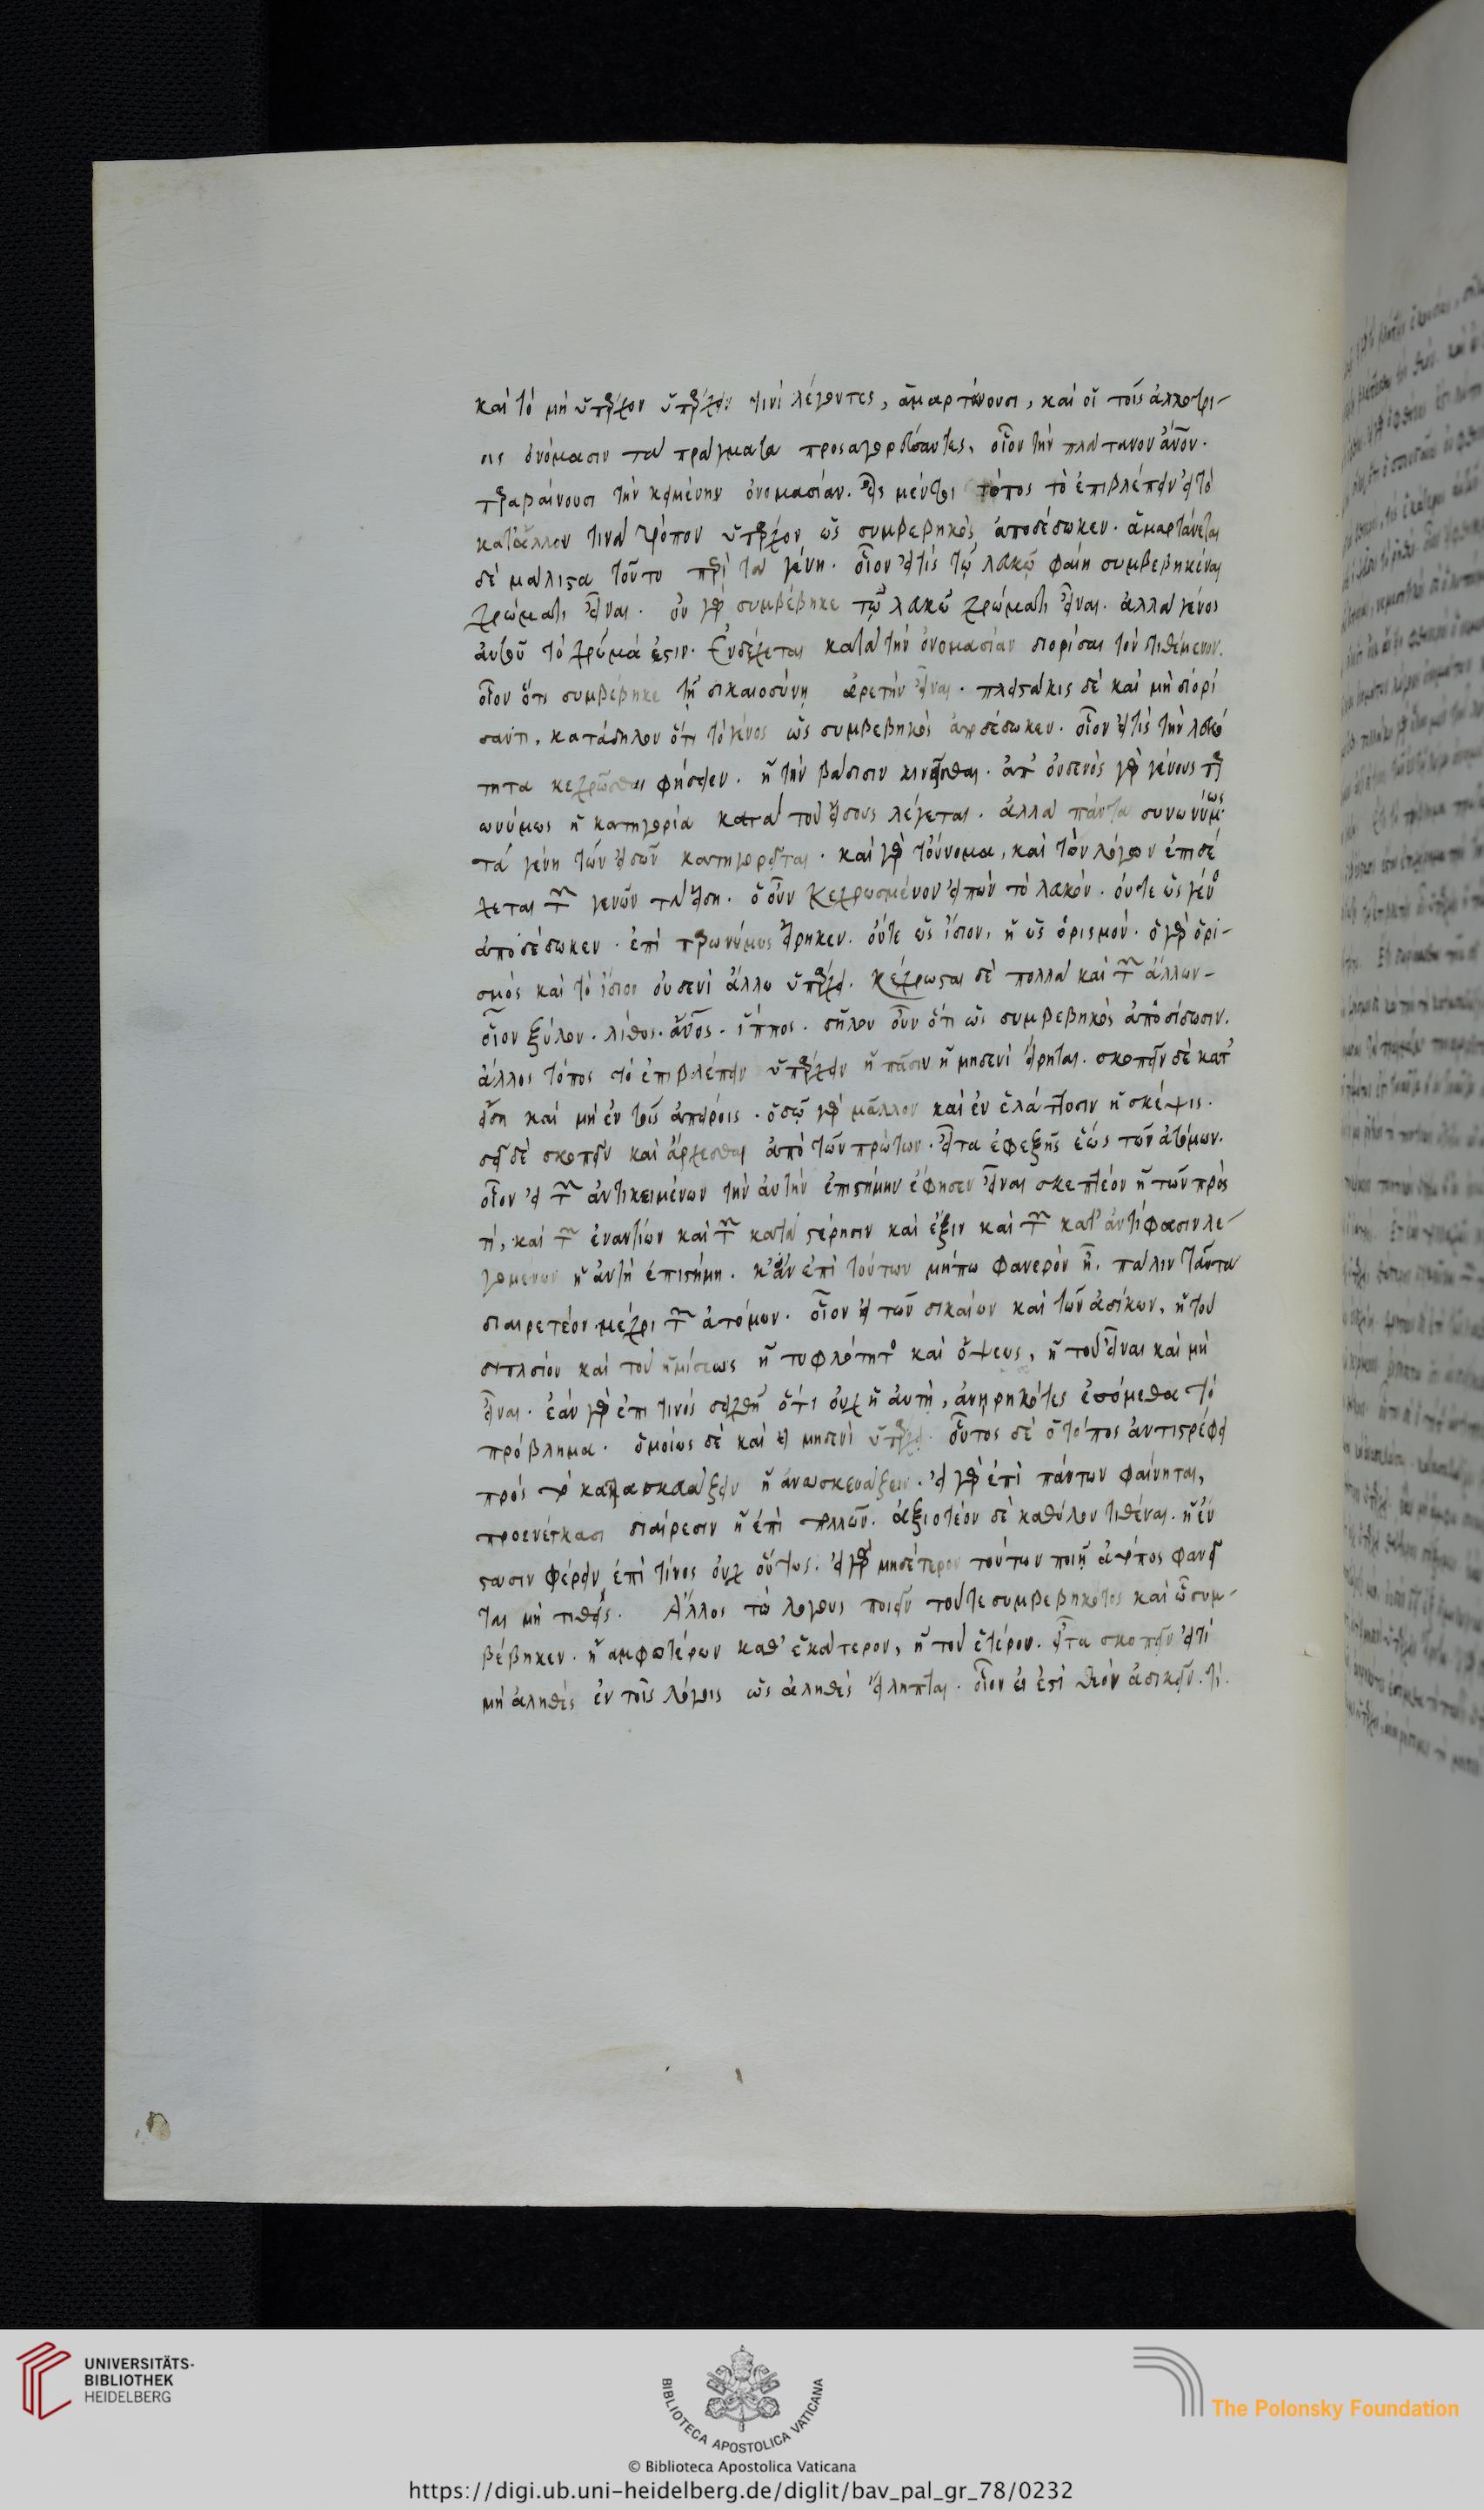 καὶ τὸ μὴ ὑπάρχον ὑπάρχειν τινὶ λέγοντες, ἁμαρτάνουσι, καὶ οἱ τοῖς ἀλλοτρί-
οις ὀνόμασιν τὰ πράγματα προσαγορεύσαντες, οἷον τὴν πλάτανον ἄνον.
παραβαίνουσι τὴν κειμένην ὀνομασίαν. εἷς μέντοι τόπος τὸ ἐπιβλέπειν εἰ τὸ
κατ' ἄλλον τινὰ τρόπον ὑπάρχον ὡς συμβεβηκὸς ἀποδέδωκεν. ἁμαρτάνεται
δὲ μάλιστα τοῦτο περὶ τὰ γένη. οἷον εἴ τις τῷ λευκῷ φαίη συμβεβηκέναι
χρώματι εἶναι. οὐ γὰρ συμβέβηκε τῷ λευκῷ χρώματι εἶναι. ἀλλὰ γένος
αὐτοῦ τὸ χρῶμά ἐστιν. Ἐνδέχεται κατὰ τὴν ὀνομασίαν διορίσαι τὸν τιθέμενον.
οἷον ὅτι συμβέβηκε τῇ δικαιοσύνῃ ἀρετὴν εἶναι. πλειστάκις δὲ καὶ μὴ διορί
σαντι, κατάδηλον ὅτι τὸ γένος ὡς συμβεβηκὸς ἀποδέδωκεν. οἷον εἴ τις τὴν λευκό
τητα κεχρῶσθαι φήσειεν. ἢ τὴν βάδισιν κινεῖσθαι. ἀπ' οὐδενὸς γὰρ γένους παρ
ωνύμως ἡ κατηγορία κατὰ τοῦ εἴδους λέγεται. ἀλλὰ πάντα συνωνύμως
τὰ γένη τῶν εἰδῶν κατηγορεῖται. καὶ γὰρ τοὔνομα, καὶ τὸν λόγον ἐπιδέ
χεται τῶν γενῶν τὰ εἴδη. ὁ οὖν κεχρωσμένον εἰπὼν τὸ λευκόν. οὔτε ὡς γένος
ἀποδέδωκεν. ἐπεὶ παρωνύμως εἴρηκεν. οὔτε ὡς ἴδιον, ἢ ὡς ὁρισμόν. ὁ γὰρ ὁρι-
σμὸς καὶ τὸ ἴδιον οὐδενὶ ἄλλῳ ὑπάρχει. κέχρωσται δὲ πολλὰ καὶ τῶν ἄλλων-
οἷον ξύλον. λίθος. ἄνος. ἵππος. δῆλον οὖν ὅτι ὡς συμβεβηκὸς ἀποδίδωσιν.
ἄλλος τόπος τὸ ἐπιβλέπειν ὑπάρχειν ἢ πᾶσιν ἢ μηδενὶ εἴρηται. σκοπεῖν δὲ κατ'
εἴδη καὶ μὴ ἐν τοῖς ἀπείροις. ὁδῷ γὰρ μᾶλλον καὶ ἐν ἐλάττοσιν ἡ σκέψις.
δεῖ δὲ σκοπεῖν καὶ ἄρχεσθαι ἀπὸ τῶν πρώτων. εἶτα ἐφεξῆς ἕως τῶν ἀτόμων.
οἷον εἰ τῶν ἀντικειμένων τὴν αὐτὴν ἐπιστήμην ἔφησεν εἶναι σκεπτέον εἰ τῶν πρὸς
τί, καὶ τῶν ἐναντίων καὶ τῶν κατὰ στέρησιν καὶ ἕξιν καὶ τῶν κατ' ἀντίφασιν λε-
γομένων ἡ αὐτὴ ἐπιστήμη. κἂν ἐπὶ τούτων μήπω φανερὸν ᾖ. πάλιν ταῦτα
διαιρετέον μέχρι τῶν ἀτόμων. οἷον εἰ τῶν δικαίων καὶ τῶν ἀδίκων, ἢ τοῦ
διπλασίου καὶ τοῦ ἡμίσεως ἢ τυφλότητος καὶ ὄψεως, ἢ τοῦ εἶναι καὶ μὴ
εἶναι. ἐὰν γὰρ ἐπί τινος δειχθῇ ὅτι οὐχ ἡ αὐτή, ἀνῃρηκότες ἐσόμεθα τὸ
πρόβλημα. ὁμοίως δὲ καὶ εἰ μηδενὶ ὑπάρχει. οὗτος δὲ ὁ τόπος ἀντιστρέφει
πρὸς τὸ κατασκευάζειν ἢ ἀνασκευάζειν. εἰ γὰρ ἐπὶ πάντων φαίνηται,
προενέγκασι διαίρεσιν ἢ ἐπὶ πολλῶν. ἀξιωτέον δὲ καθόλου τιθέναι. ἢ ἔν
στασιν φέρειν ἐπὶ τίνος οὐχ οὕτως. εἰ γὰρ μηδέτερον τούτων ποιῇ ἄτοπος φανεῖ
ται μὴ τιθείς. Ἄλλος τὸ λόγους ποιεῖν τοῦ τε συμβεβηκότος καὶ ᾧ συμ-
βέβηκεν. ἢ ἀμφοτέρων καθ' ἑκάτερον, ἢ τοῦ ἑτέρου. εἶτα σκοπεῖν εἴ τι
μὴ ἀληθὲς ἐν τοῖς λόγοις ὡς ἀληθὲς εἴληπται. οἷον εἰ ἔστι θεὸν ἀδικεῖν. τί.
UNIVERSITÄTS-
BIBLIOTHEK
HEIDELBERG
BIBLIOTECA APOSTOLICA VATICANA
© Biblioteca Apostolica Vaticana
The Polonsky Foundation
https://digi.ub.uni-heidelberg.de/diglit/bav_pal_gr_78/0232